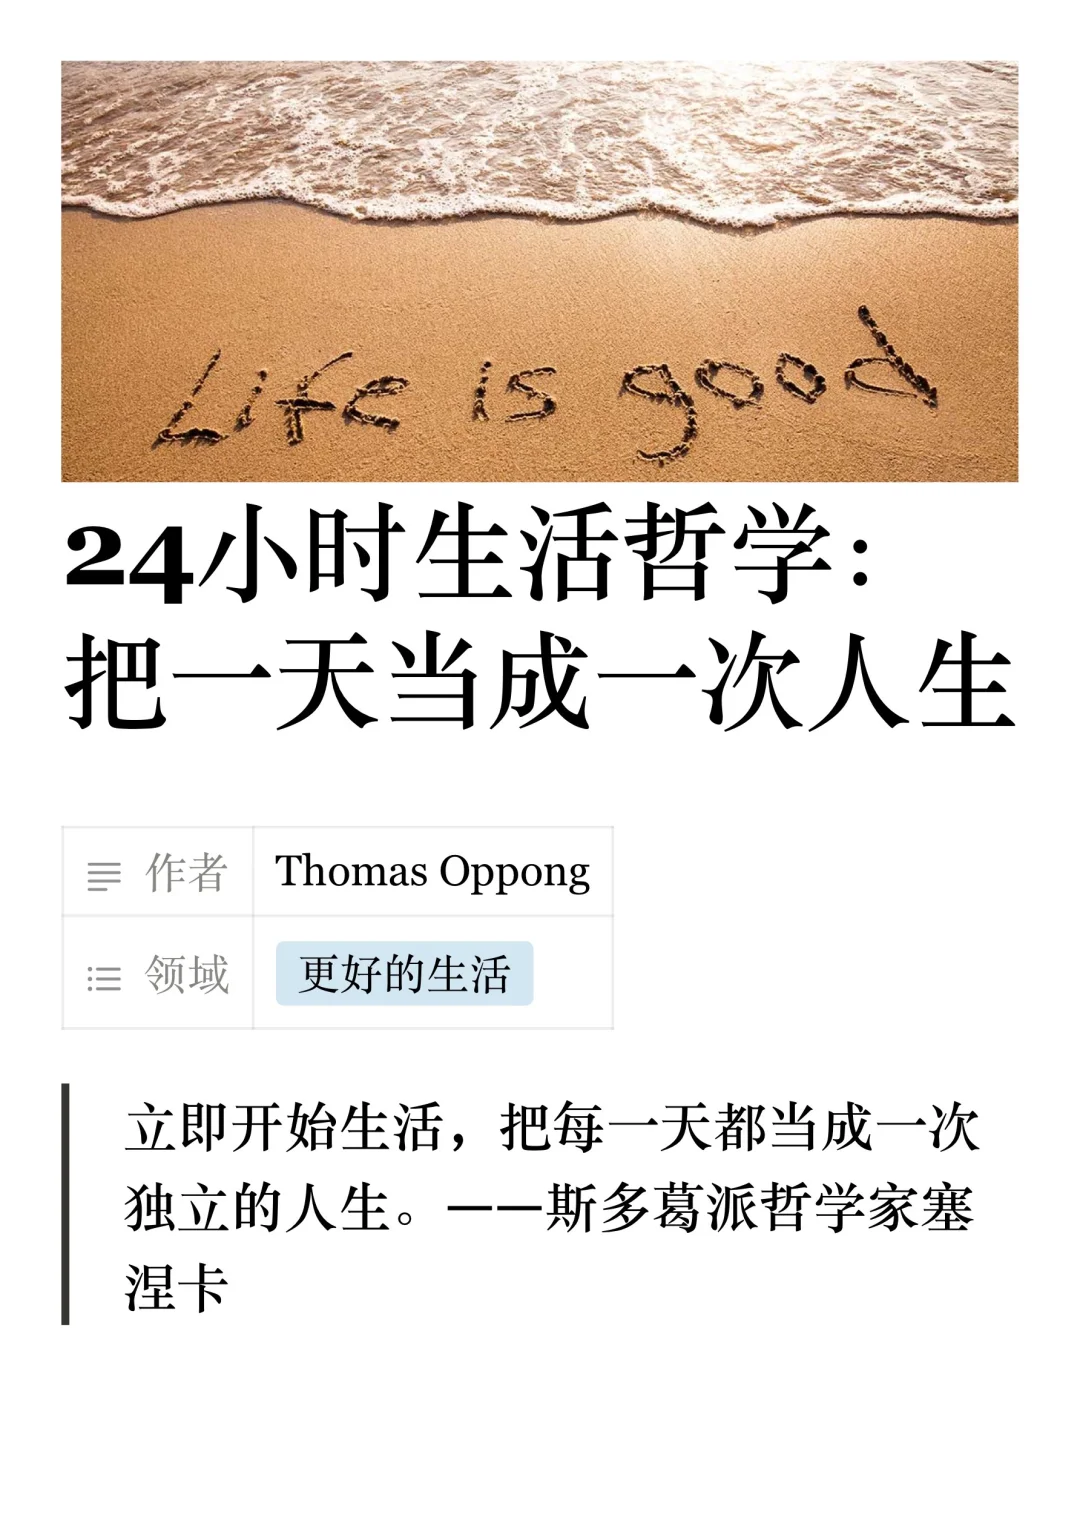 Life is good
24小时生活哲学：
把一天当成一次人生
作者 Thomas Oppong
领域 更好的生活
立即开始生活，把每一天都当成一次
独立的人生。——斯多葛派哲学家塞
涅卡